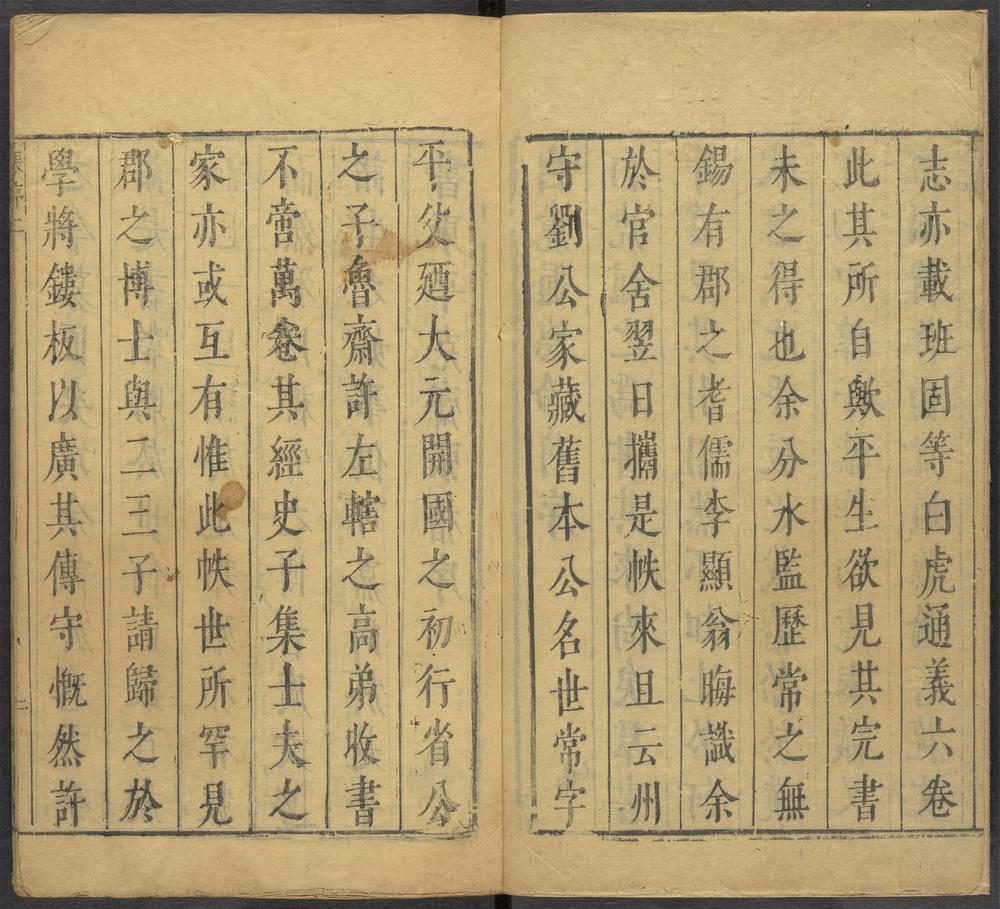 志亦載班固等白虎通義六卷
此其所自歟平生欲見其完書
未之得也余分水監歷常之無
錫有郡之耆儒李顯翁晦識余
於官舍翌日攜是帙來且云州
守劉公家藏舊本公名世常字
平父廼大元開國之初行省公
之子魯齋許左轄之高弟收書
不啻萬卷其經史子集士夫之
家亦或互有惟此帙世所罕見
郡之博士與二三子請歸之於
學將鏤板以廣其傳守慨然許